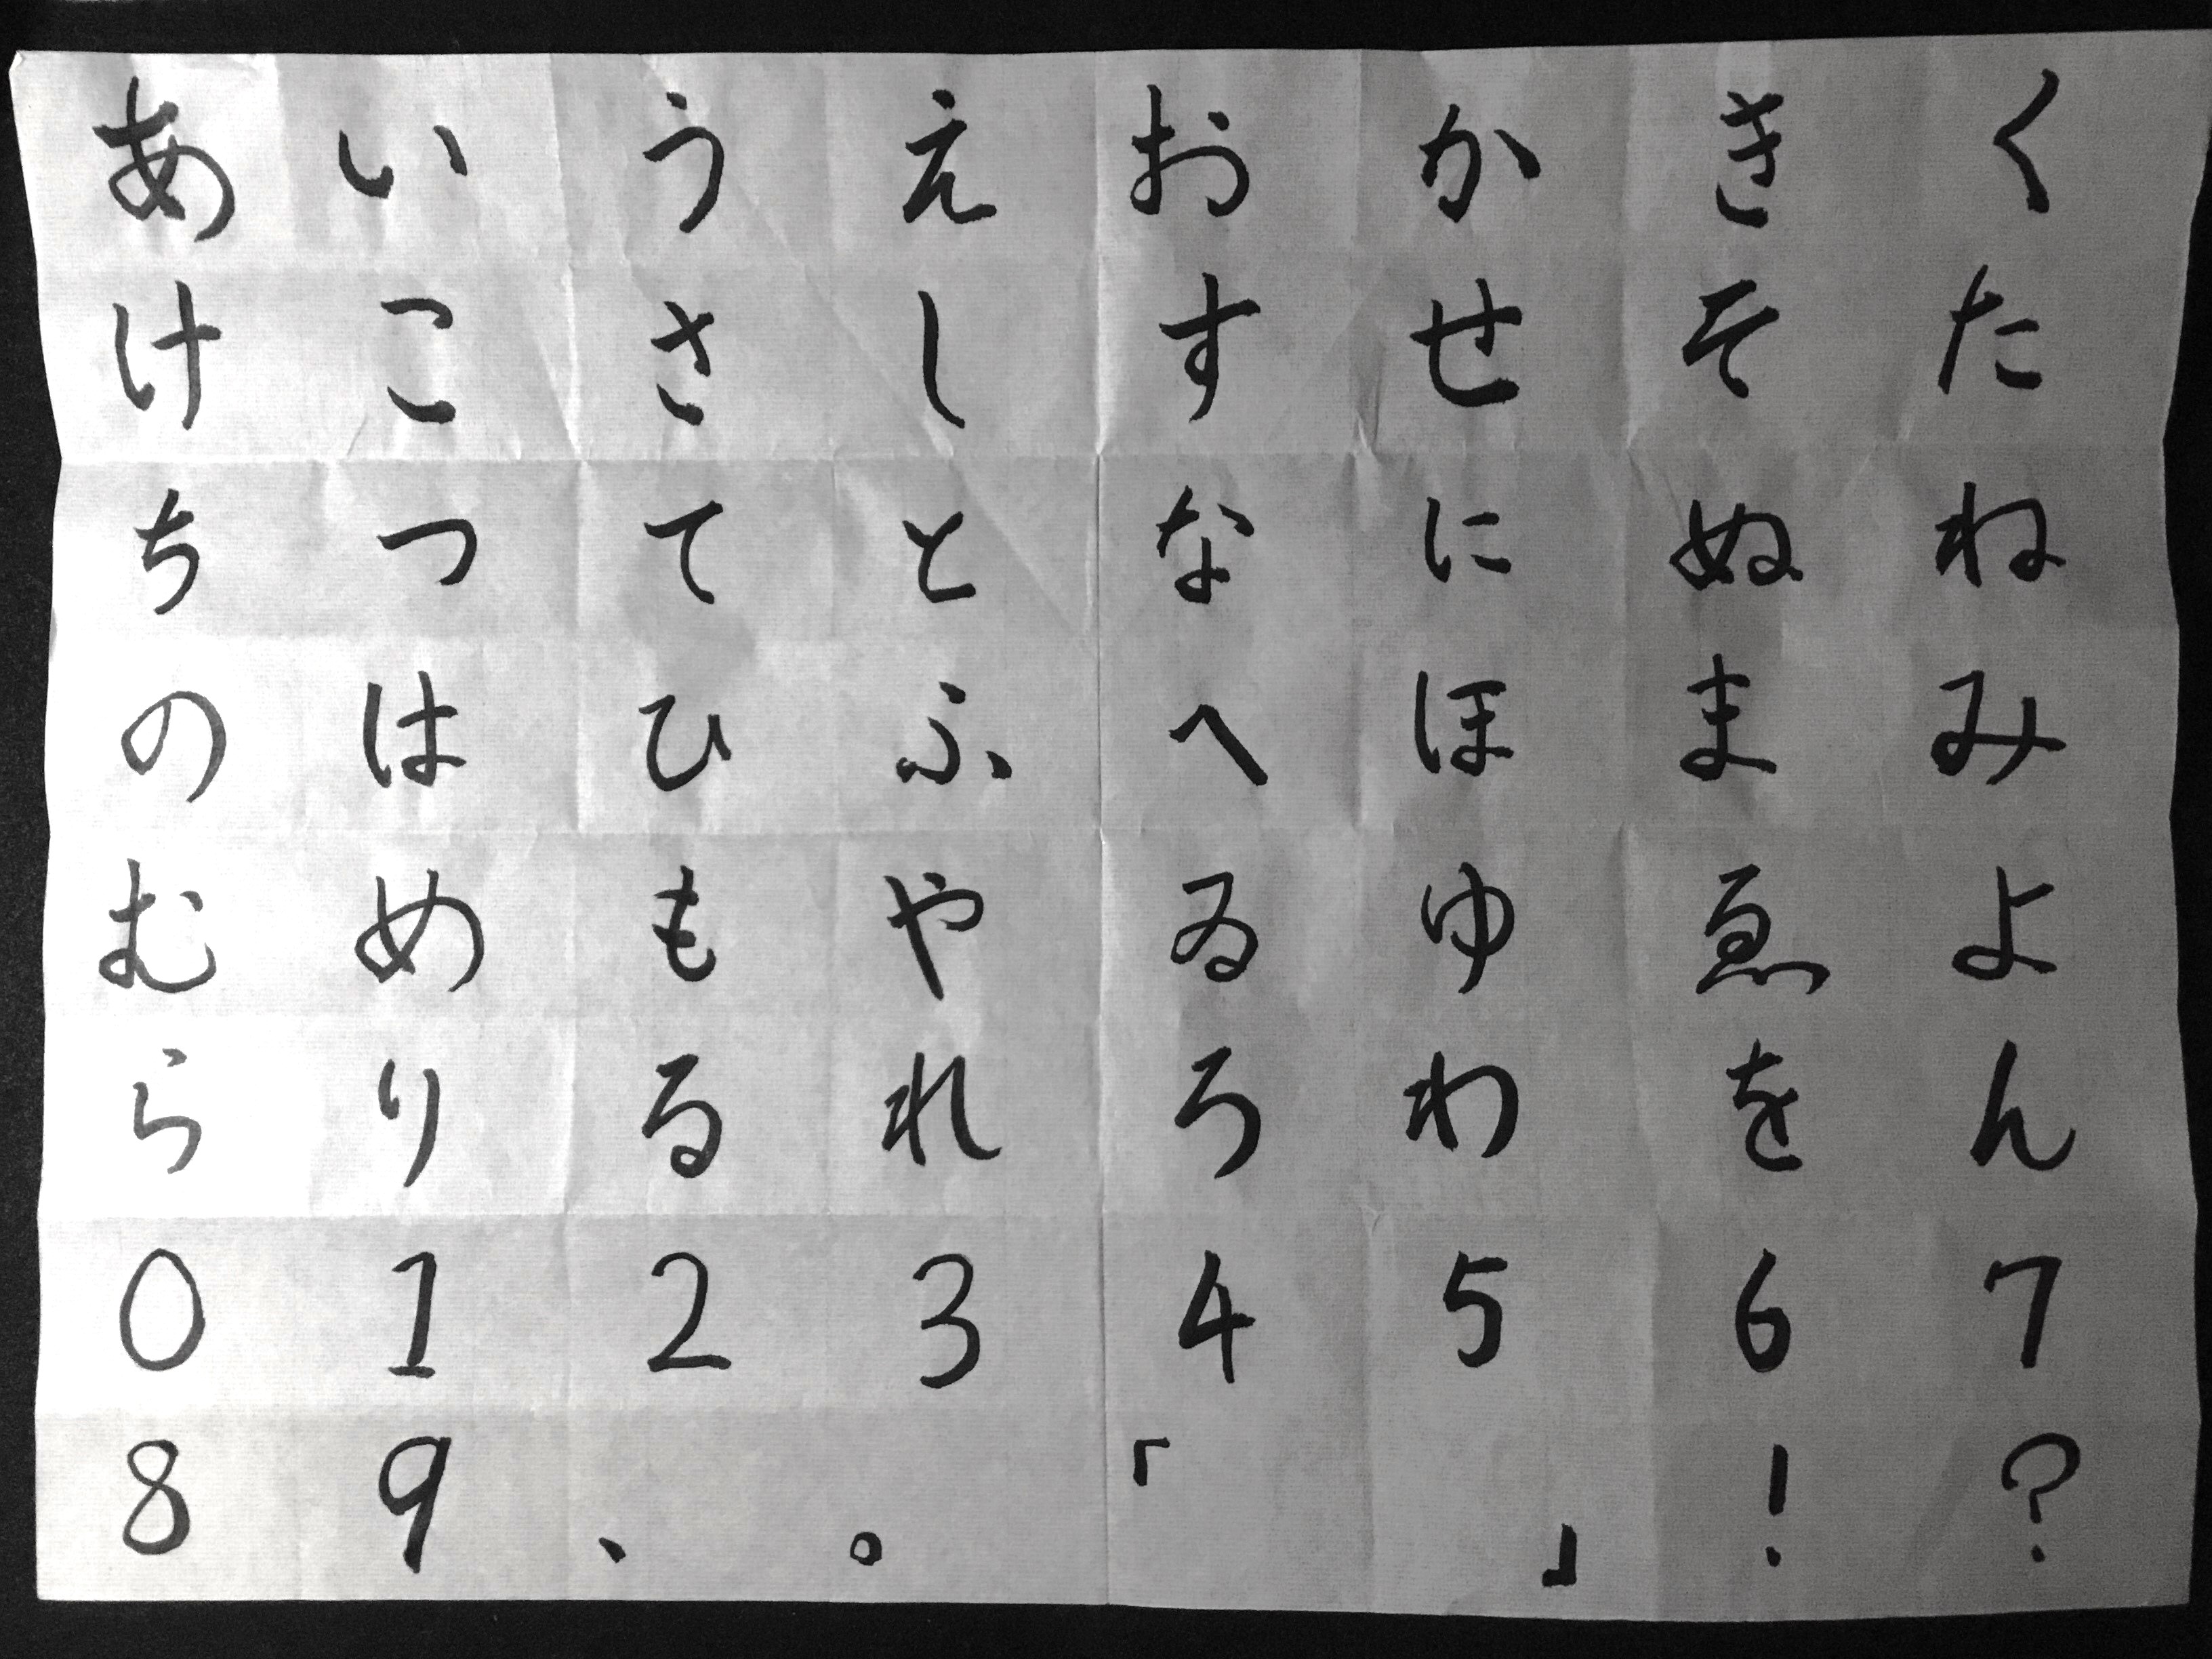 あ い う え お か き く
け こ さ し す せ そ た
ち つ て と な に ぬ ね
の は ひ ふ へ ほ ま み
む め も や ゐ ゆ ゑ よ
ら り る れ ろ わ を ん
0 1 2 3 4 5 6 7
8 9 、 。 「 」 ! ?